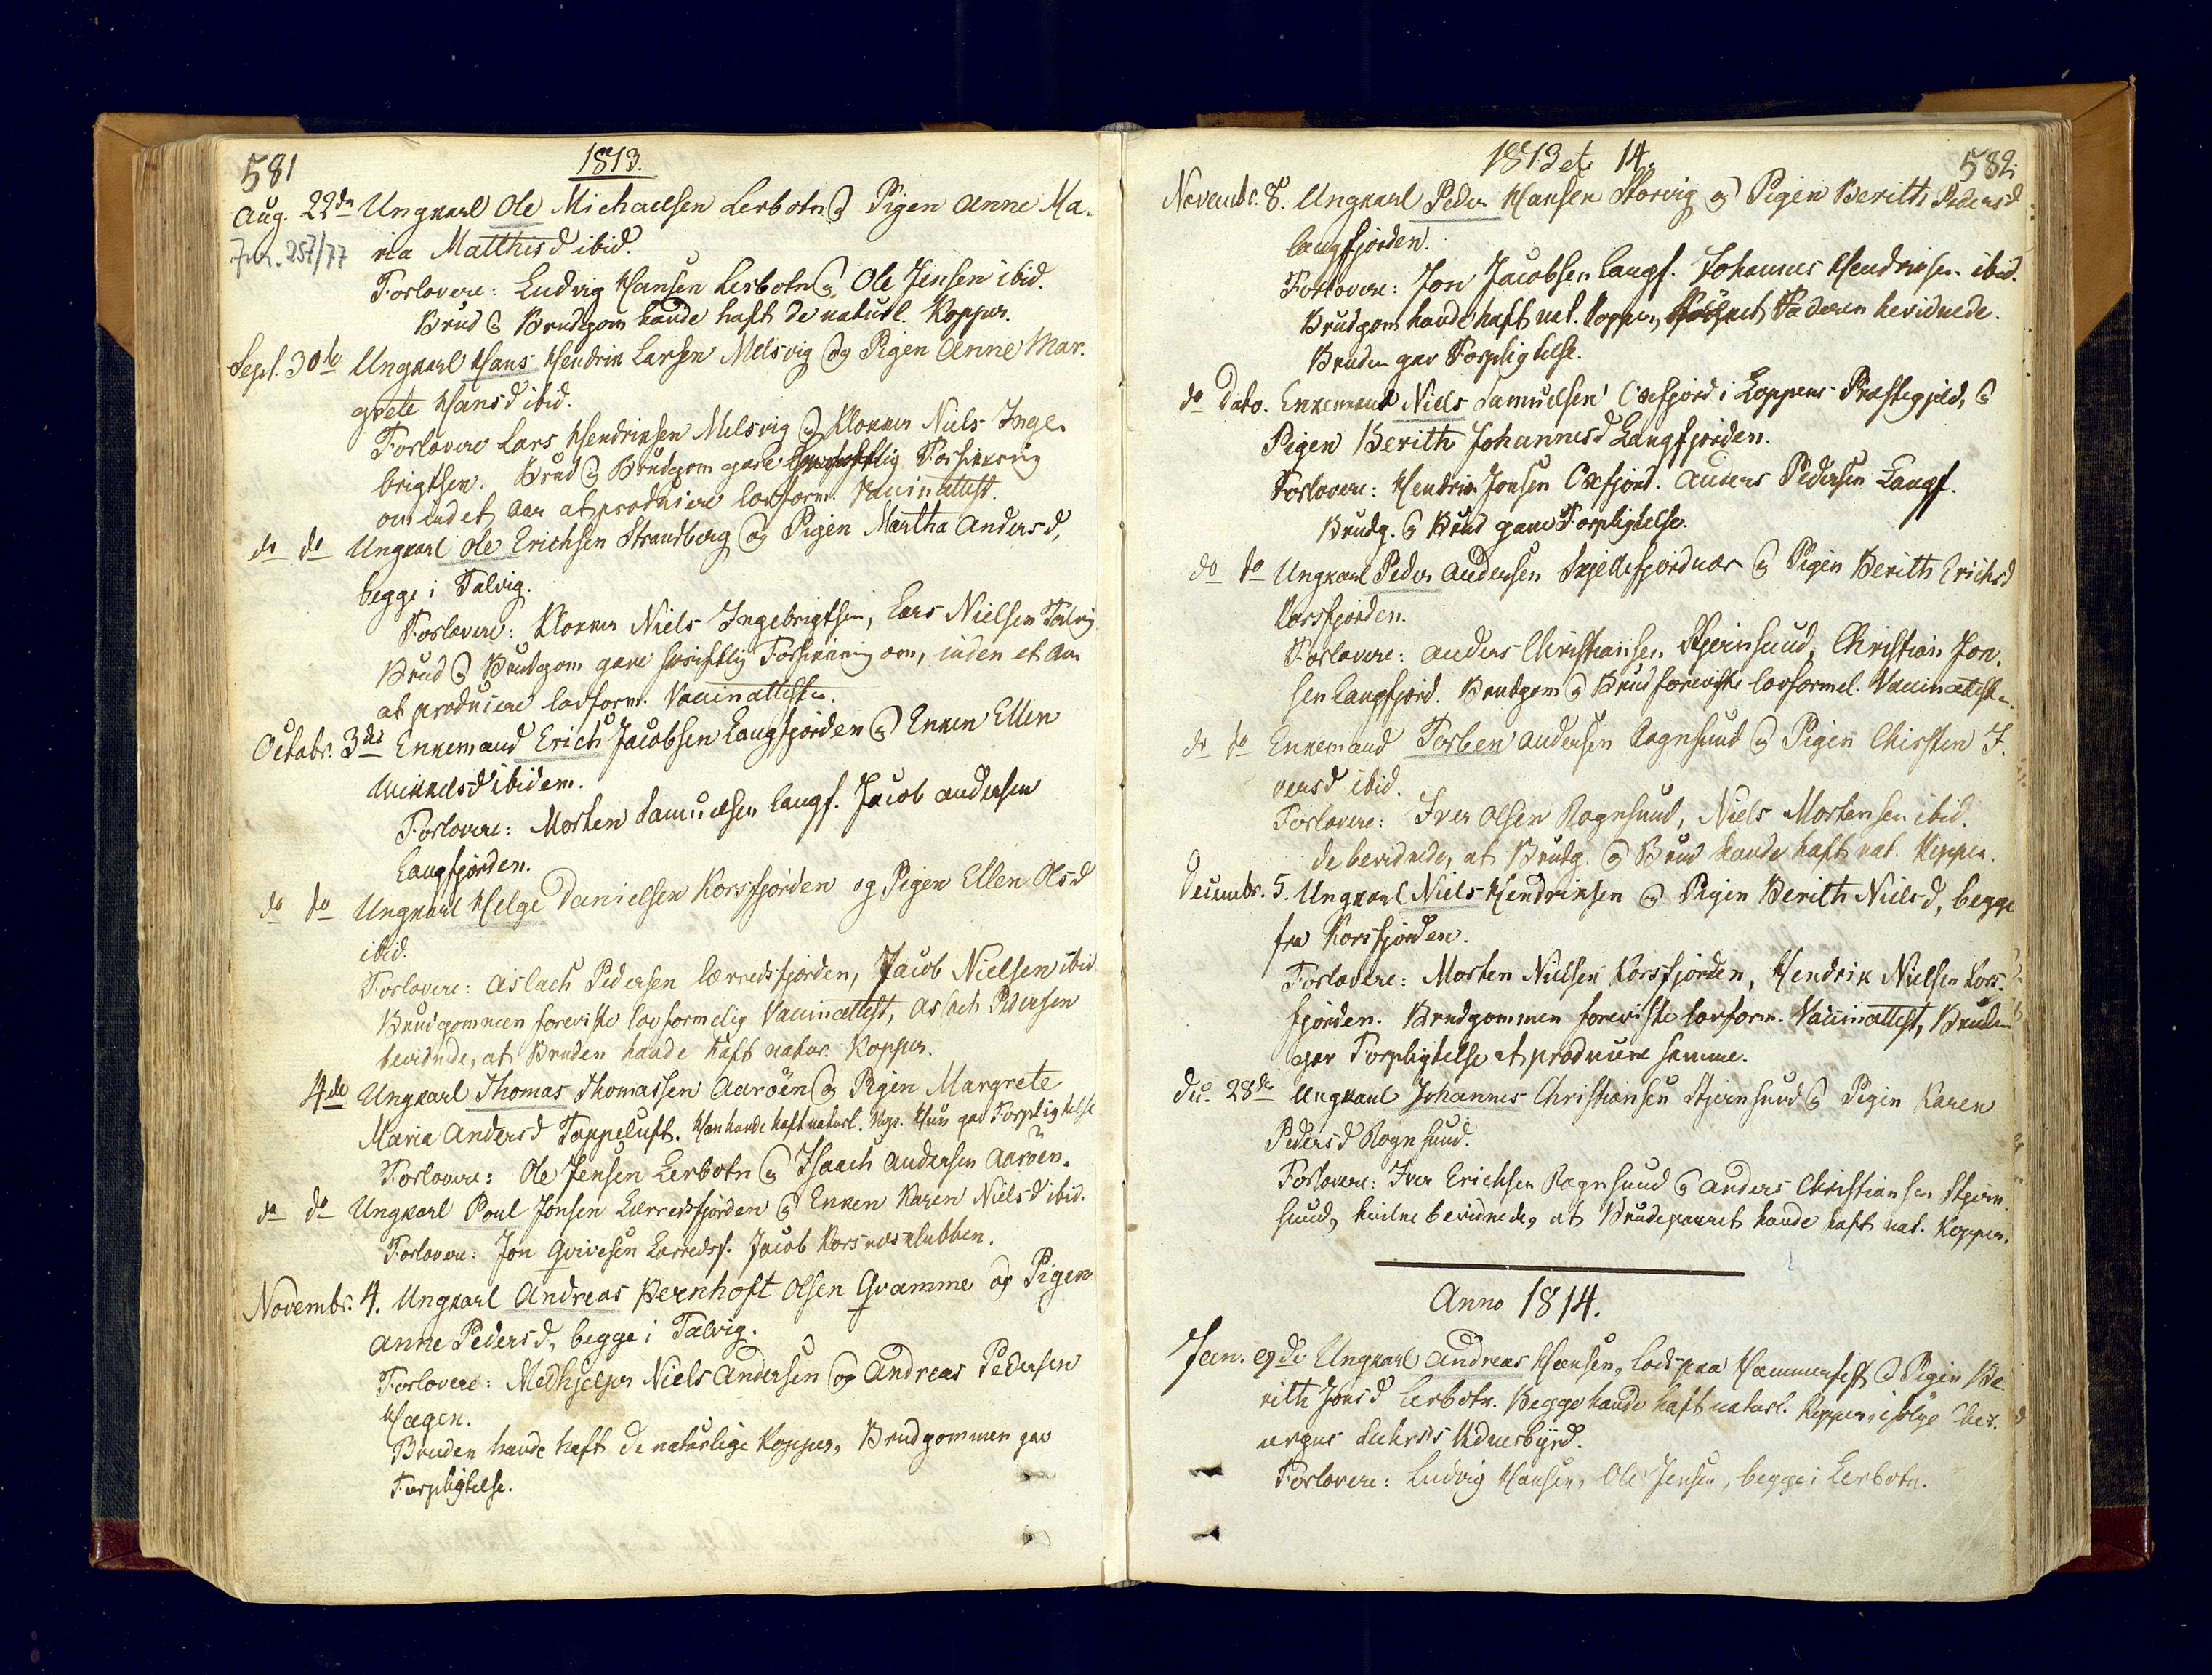 581
1813.
Aug. 22de Ungkarl Ole Michaelsen Lerbotn og Pigen Anne Ma-
ria Matthisd ibid.
Jnr. 257/77
Forlovere: Ludvig Hansen Lerbotn og Ole Jensen ibid.
Brud og Brudgom havde haft de naturl. Kopper.
Sept. 30te Ungkarl Hans Hendrik Larsen Melsvig og Pigen Anne Mar-
grete Hansd ibid.
Forlovere Lars Hendriksen Melsvig og Klokker Niels Inge-
brigtsen. Brud og Brudgom gave skriftlig Forsikkring
om inden et Aar at producere lovform. Vaccinattest.
do do Ungkarl Ole Erichsen Strandberg og Pigen Martha Andersd,
begge i Talvig.
Forlovere: Klokker Niels Ingebrigtsen, Lars Nielsen Talvig
Brud og Brudgom gave skriftlig Forsikkring om, inden et Aar
at producere lovform. Vaccinattester.
Octobr. 3die Enkemand Erich Jacobsen Langfjorden og Enken Ellen
Mikkelsd ibidem.
Forlovere: Morten Samuelsen Langf. Jacob Andersen
Langfjorden.
do do Ungkarl Helge Danielsen Korsfjorden og Pigen Ellen Olsd
ibid.
Forlovere: Aslach Pedersen Lerredsfjorden, Jacob Nielsen ibid
Brudgommen foreviste lovformelig Vaccinattest, Aslach Pedersen
bevidnede, at Bruden havde haft natur. Kopper.
4de Ungkarl Thomas Thomassen Aaröen og Pigen Margrete
Maria Andersd Toppeluft. Han havde haft naturl. Kop. Hun gav Forpligtelse
Forlovere: Ole Jensen Lerbotn og Isaach Andersen Aaröen.
do do Ungkarl Poul Jonsen Lerredsfjorden og Enken Karen Nielsd ibid.
Forlovere: Jon Qvivesen Lerredsf. Jacob Korsnæsklubben.
Novembr. 4. Ungkarl Andreas Bernhoft Olsen Qvamme og Pigen
Anne Pedersd, begge i Talvig.
Forlovere: Medhjelper Niels Andersen og Andreas Pedersen
Hagen.
Bruden havde haft de naturlige Kopper, Brudgommen gav
Forpligtelse.
1813 et 14.
582.
Novembr. 8. Ungkarl Peder Hansen Storvig og Pigen Berith Pedersd
Langfjorden.
Forlovere: Jon Jacobsen Langf. Johannes Hendriksen ibid.
Brudgom havde haft nat. Kopper, Faderen bevidnede.
Bruden gav Forpligtelse.
do Dato. Enkemand Niels Samuelsen Oxefjord i Loppens Præstegjeld, og
Pigen Berith Johannesd Langfjorden.
Forlovere: Hendrik Jonsen Oxefjord. Anders Pedersen Langf.
Brudg. og Brud gave Forpligtelse.
do do Ungkarl Peder Andersen Skjellefjordnæs og Pigen Berith Erichsd
Korsfjorden.
Forlovere: Anders Christiansen Stjernsund, Christian Jon-
sen Langfjord. Brudgom og Brud foreviste lovformel. Vaccinattester.
do do Enkemand Torben Andersen Rognsund og Pigen Chirsten I-
versd ibid.
Forlovere: Iver Olsen Rognsund, Niels Mortensen ibid.
de bevidnede, at Brudg. og Brud havde haft nat. Kopper.
Decembr. 5. Ungkarl Niels Hendriksen og Pigen Berith Nielsd, begge
fra Korsfjorden.
Forlovere: Morten Nielsen Korsfjorden, Hendrik Nielsen Kors-
fjorden. Brudgommen foreviste lovform. Vaccinattest, Bruden
gav Forpligtelse at producere samme.
Dec. 28de Ungkarl Johannes Christiansen Stjernsund og Pigen Karen
Pedersd Rognsund.
Forlovere: Iver Erichsen Rognsund og Anders Christiansen Stjern-
sund, hvilke bevidnede, at Brudeparret havde haft nat. Kopper.
Anno 1814.
Jan. 9de Ungkarl Andreas Hansen, Lods paa Hammerfest og Pigen Be-
rith Jonsd Lerbotn. Begge havde haft naturl. Kopper, ifölge Chir-
urgus Vidnesbyrd.
Forlovere: Ludvig Hansen, Ole Jensen, begge i Lerbotn.